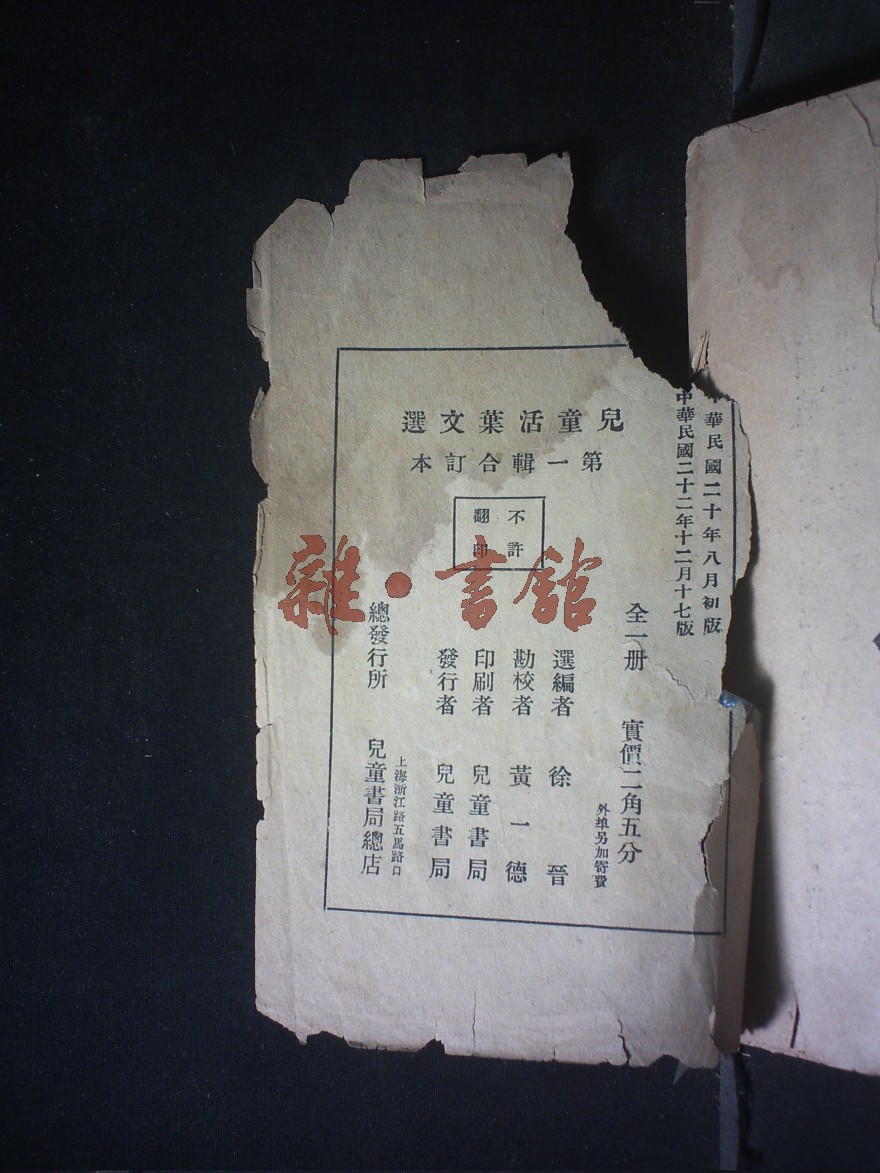 中華民國二十年八月初版
中華民國二十二年十二月十七版
兒童活葉文選
第一輯合訂本
不許
翻印
全一册 實價二角五分
外埠另加寄費
選編者 徐晉
勘校者 黃一德
印刷者 兒童書局
發行者 兒童書局
上海浙江路五馬路口
總發行所 兒童書局總店
雜·書館